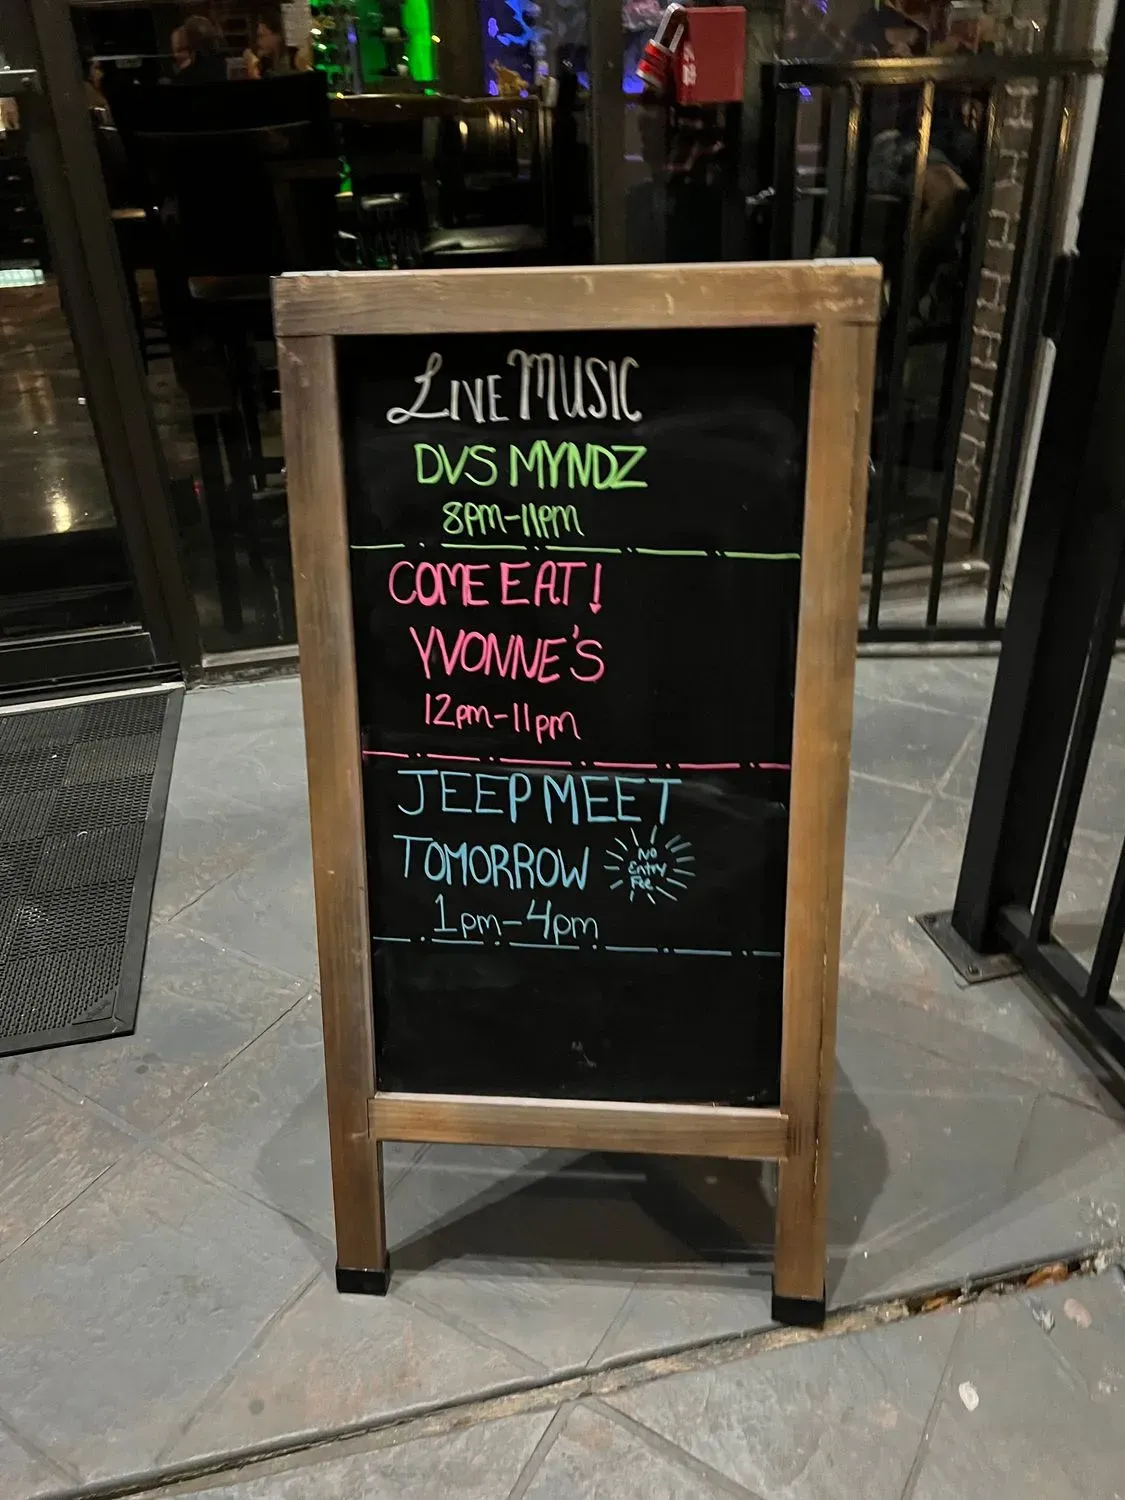 LIVE MUSIC
DVS MYNDZ
8pm-11pm
COME EAT!
YVONNE'S
12pm-11pm
JEEP MEET
TOMORROW
No
Entry
Fee
1pm-4pm